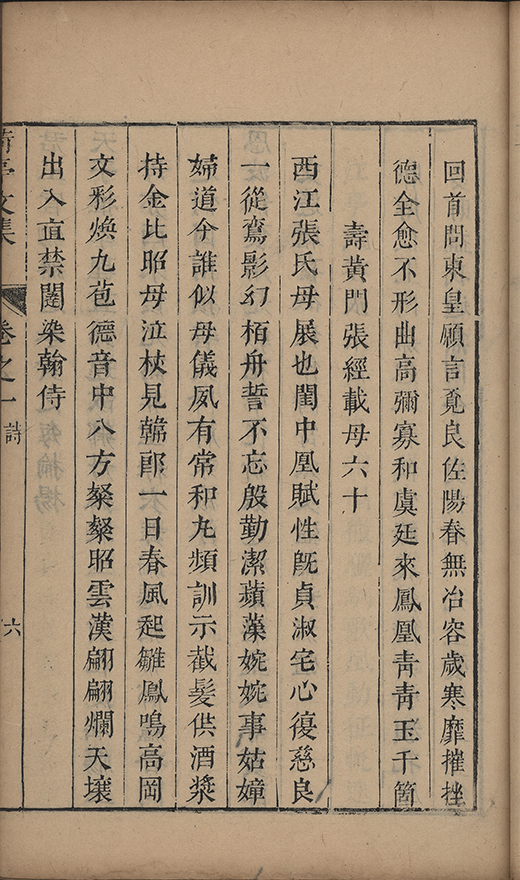 回首問東皇願言覓良佐陽春無冶容歲寒靡摧挫
德全愈不形曲高彌寡和虞廷來鳳凰青青玉千箇
壽黃門張經載母六十
西江張氏母展也閨中凰賦性旣貞淑宅心復慈良
一從鸞影幻栢舟誓不忘殷勤潔蘋藻婉婉事姑嫜
婦道今誰似母儀夙有常和丸頻訓示截髮供酒漿
持金比昭母泣杖見韓郎一日春風起雛鳳鳴高岡
文彩煥九苞德音中八方粲粲昭雲漢翩翩爛天壤
出入直禁闥染翰侍
亭文集
卷之一 詩
六